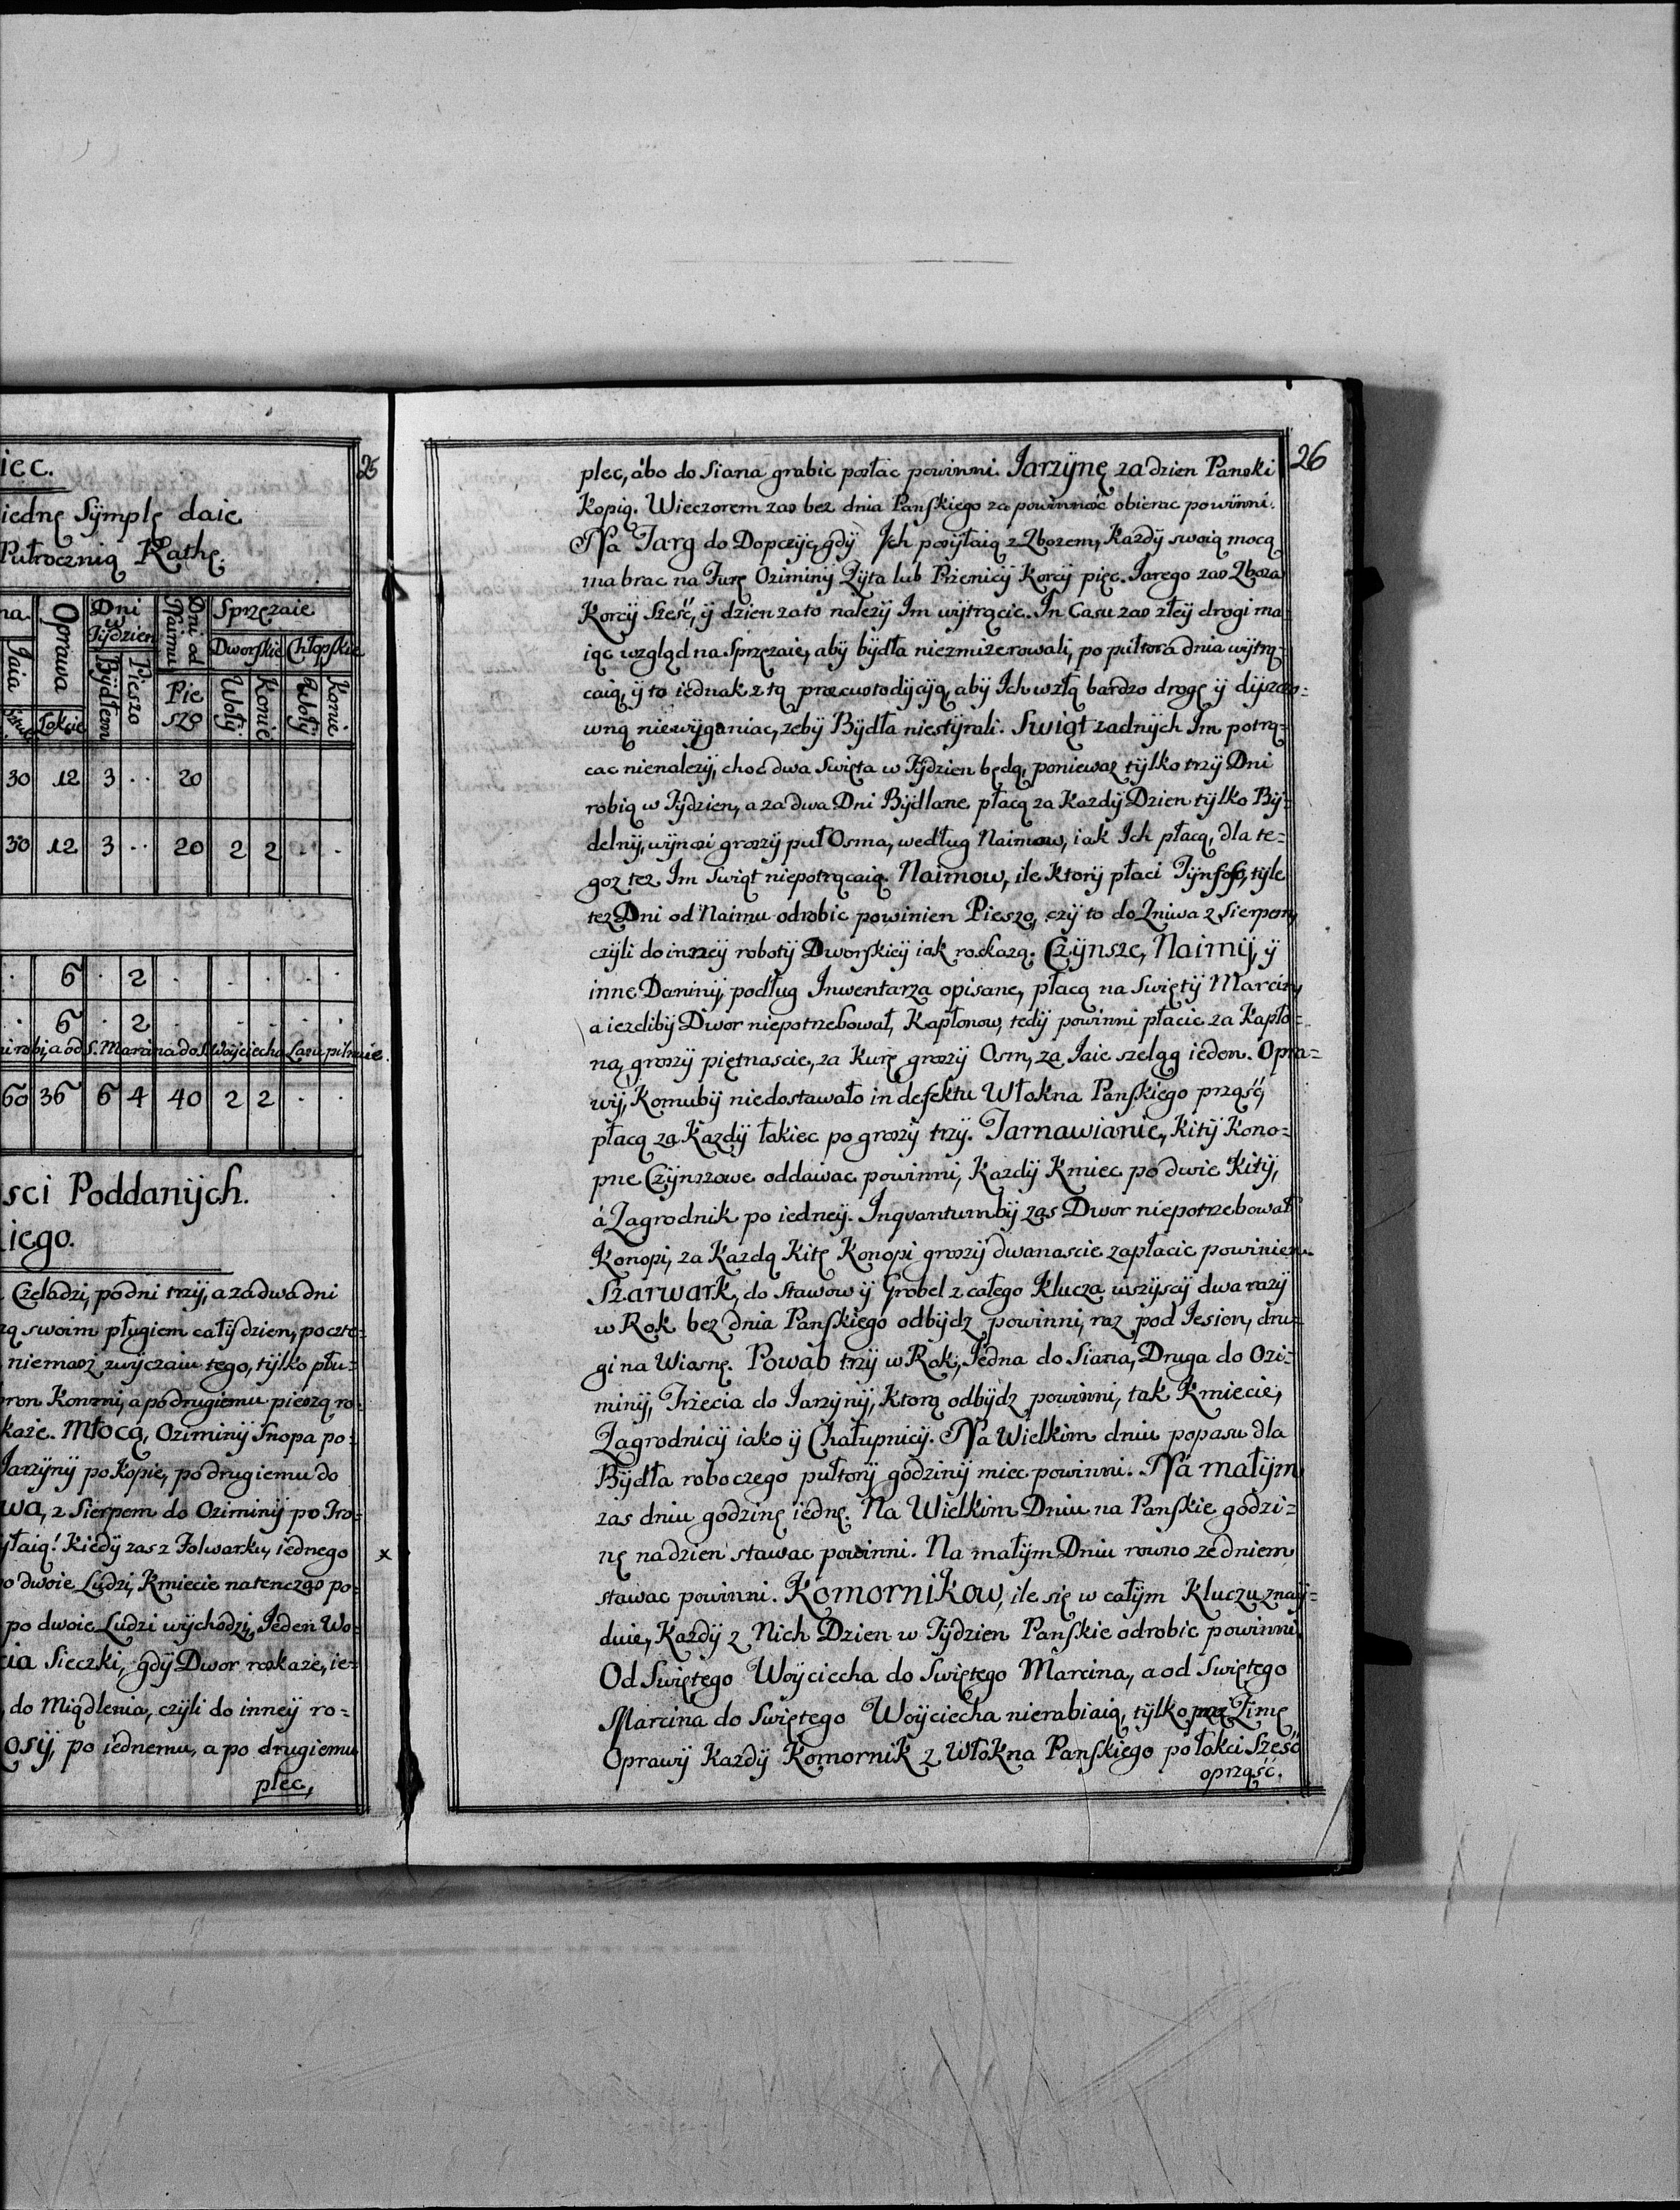 iec.
25
iednę Sÿmplę daie
Pułrocznią Rathę.
na
Oprawa
Dni w Tÿdzien
Dni od Naimu
Sprzęzaie
Dworskie
Chłopskie
Iaia
Bÿdłem
Pieszo
Pie szo
Wołÿ
Konie
Wołÿ
Konie
Łokcie
30 12 3 . . 20
30 12 3 . . 20 2 2 . .
. 6 . 2 . . . . .
. 6 . 2 . . . . .
ni robi, a od S. Marcina do S. Woÿciecha Lasu pilnuie.
60 36 6 4 40 2 2 . .
sci Poddanÿch.
iego.
Czeladzi, po dni trzÿ, a za dwa dni
zą swoim pługiem całÿ dzien, poczte=
niemasz zwÿczaiu tego, tÿlko płu=
bron Konmi, a po drugiemu pieszą ro=
kaze. Młocą, Oziminÿ Snopa po=
Jarzÿnÿ po Kopie, po drugiemu do
wa, z Sierpem do Oziminÿ po Tro=
ÿłaią! Kiedÿ zas z Folwarku, iednego
po dwoie Ludzi, Kmiecie natenczas po=
po dwoie Ludzi wÿchodzi, Jeden Wo=
cia Sieczki, gdÿ Dwor roskaze, ie=
do Miądlenia, czÿli do inneÿ ro=
osÿ, po iednemu, a po drugiemu
plec,
x
26
plec, ábo do Siana grabic posłac powinni. Jarzÿnę za dzien Panski
Kopią. Wieczorem zas bez dnia Panskiego za powinność obierac powinni.
Na Targ do Dopczÿc, gdÿ Ich posÿłaią z Zbozem, Kazdÿ swoią mocą
ma brac na Furę Oziminÿ Zÿta lub Przenicÿ Korcÿ pięc. Jarego zas Zboza
Korcÿ Sześć, ÿ dzien za to nalezÿ Im wÿtrącic. In Casu zas złeÿ drogi ma=
iąc wzgląd na Sprzęzaie, abÿ bÿdła niezmizerowali, po pułtora dnia wÿtrą=
caią, ÿ to iednak z tą przecustodÿcÿą, abÿ Ich w złą bardzo drogę ÿ dÿszzo=
wną niewÿganiac, zebÿ Bÿdła niestÿrali. Swiąt zadnÿch Im potrą=
cac nienalezÿ, choc dwa Swięta w Tÿdzien będą, poniewaz tÿlko trzÿ Dni
robią w Tÿdzien, a za dwa Dni Bÿdlane płacą za Kazdÿ Dzien tÿlko Bÿ=
delnÿ, wÿnosi groszÿ puł Osma, według Naimow, iak Ich płacą, dla te=
goz tez Im Swiąt niepotrącaią. Naimow, ile Ktorÿ płaci Tÿnfow, tÿle
tez Dni od Naimu odrobic powinien Pieszo, czÿ to do Zniwa z Sierpem,
czÿli do inszeÿ robotÿ Dworskieÿ iak roskazą. Czÿnsze, Naimÿ, ÿ
inne Daninÿ, podług Inwentarza opisane, płacą na Swiętÿ Marcin,
a iezlibÿ Dwor niepotrzebował, Kapłonow, tedÿ powinni płacic za Kapło=
na, groszÿ piętnascie, za Kurę groszÿ Osm, za Iaie szeląg ieden. Opra=
wÿ, Komubÿ niedostawało in defektu Włokna Panskiego prząść,
płacą za Kazdÿ łokiec po groszÿ trzÿ. Tarnawianie, Kitÿ Kono=
pne Czÿnszowe oddawac powinni, Kazdÿ Kmiec po dwie Kitÿ,
á Zagrodnik po iedneÿ. Inqvantumbÿ zas Dwor niepotrzebował
Konopi, za Kazdą Kitę Konopi groszÿ dwanascie zapłacic powinien.
Szarwark, do Stawow ÿ Grobel z całego Klucza wszÿscÿ dwa razÿ
w Rok bez dnia Panskiego odbÿdz powinni, raz pod Iesien, dru=
gi na Wiosnę. Powab trzÿ w Rok, Jedna do Siana, Druga do Ozi=
minÿ, Trzecia do Jarzÿnÿ, Ktorą odbÿdz powinni, tak Kmiecie,
Zagrodnicÿ iako ÿ Chałupnicÿ. Na Wielkim dniu popasu dla
Bÿdła roboczego pułtorÿ godzinÿ miec powinni. Ná małÿm
zas dniu godzinę iednę. Na Wielkim Dniu na Panskie godzi=
nę na dzien stawac powinni. Na małÿm Dniu rowno ze dniem
stawac powinni. Komornikow, ile się w całÿm Kluczu znaÿ=
duie, Kazdÿ z Nich Dzien w Tÿdzien Panskie odrobic powinni
Od Swiętego Woÿciecha do Swiętego Marcina, a od Swiętego
Marcina do Swiętego Woÿciecha nierabiaią, tÿlko przez Zimę
Oprawÿ Kazdÿ Komornik z Włokna Panskiego po łokci Sześć
oprząść.